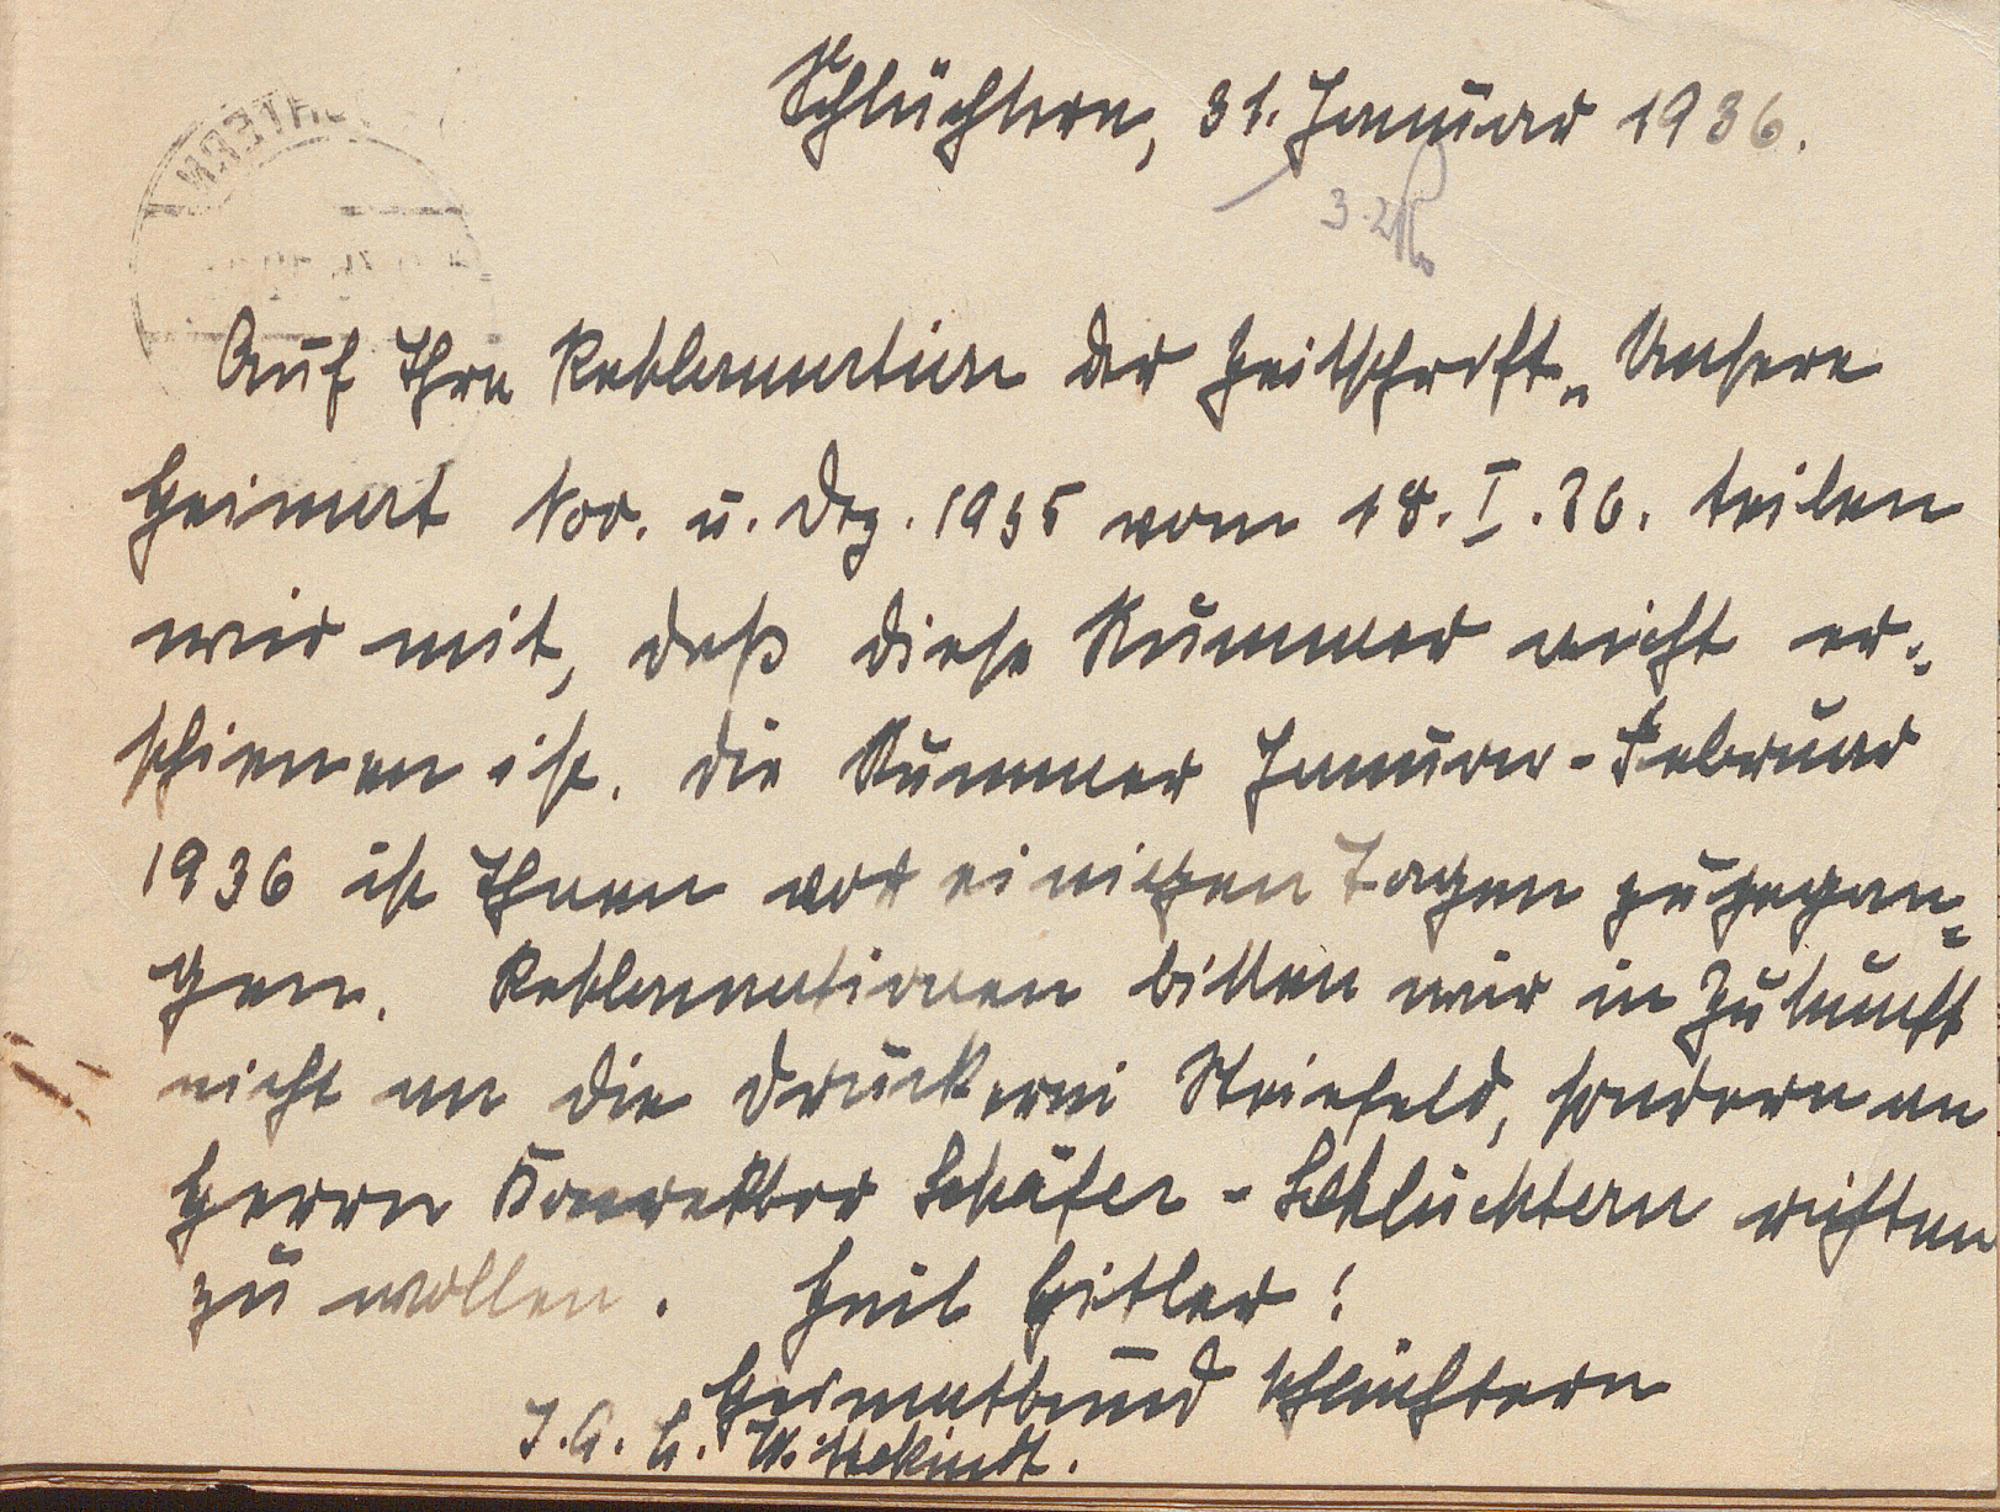 Schlüchtern, 31. Januar 1936.
3.2
Auf Ihre Reklamation der Zeitschrift „Unsere
Heimat Nov. u. Dez. 1935 vom 18. I. 36. teilen
wir mit, daß diese Nummer nicht er-
schienen ist. Die Nummer Januar-Februar
1936 ist Ihnen vor einigen Tagen zugegan-
gen. Reklamationen bitten wir in Zukunft
nicht an die Druckerei Steinfeld, sondern an
Herrn Konrektor Schäfer - Schlüchtern richten
zu wollen. Heil Hitler!
Heimatbund Schlüchtern
I. A. H. Wittekindt.